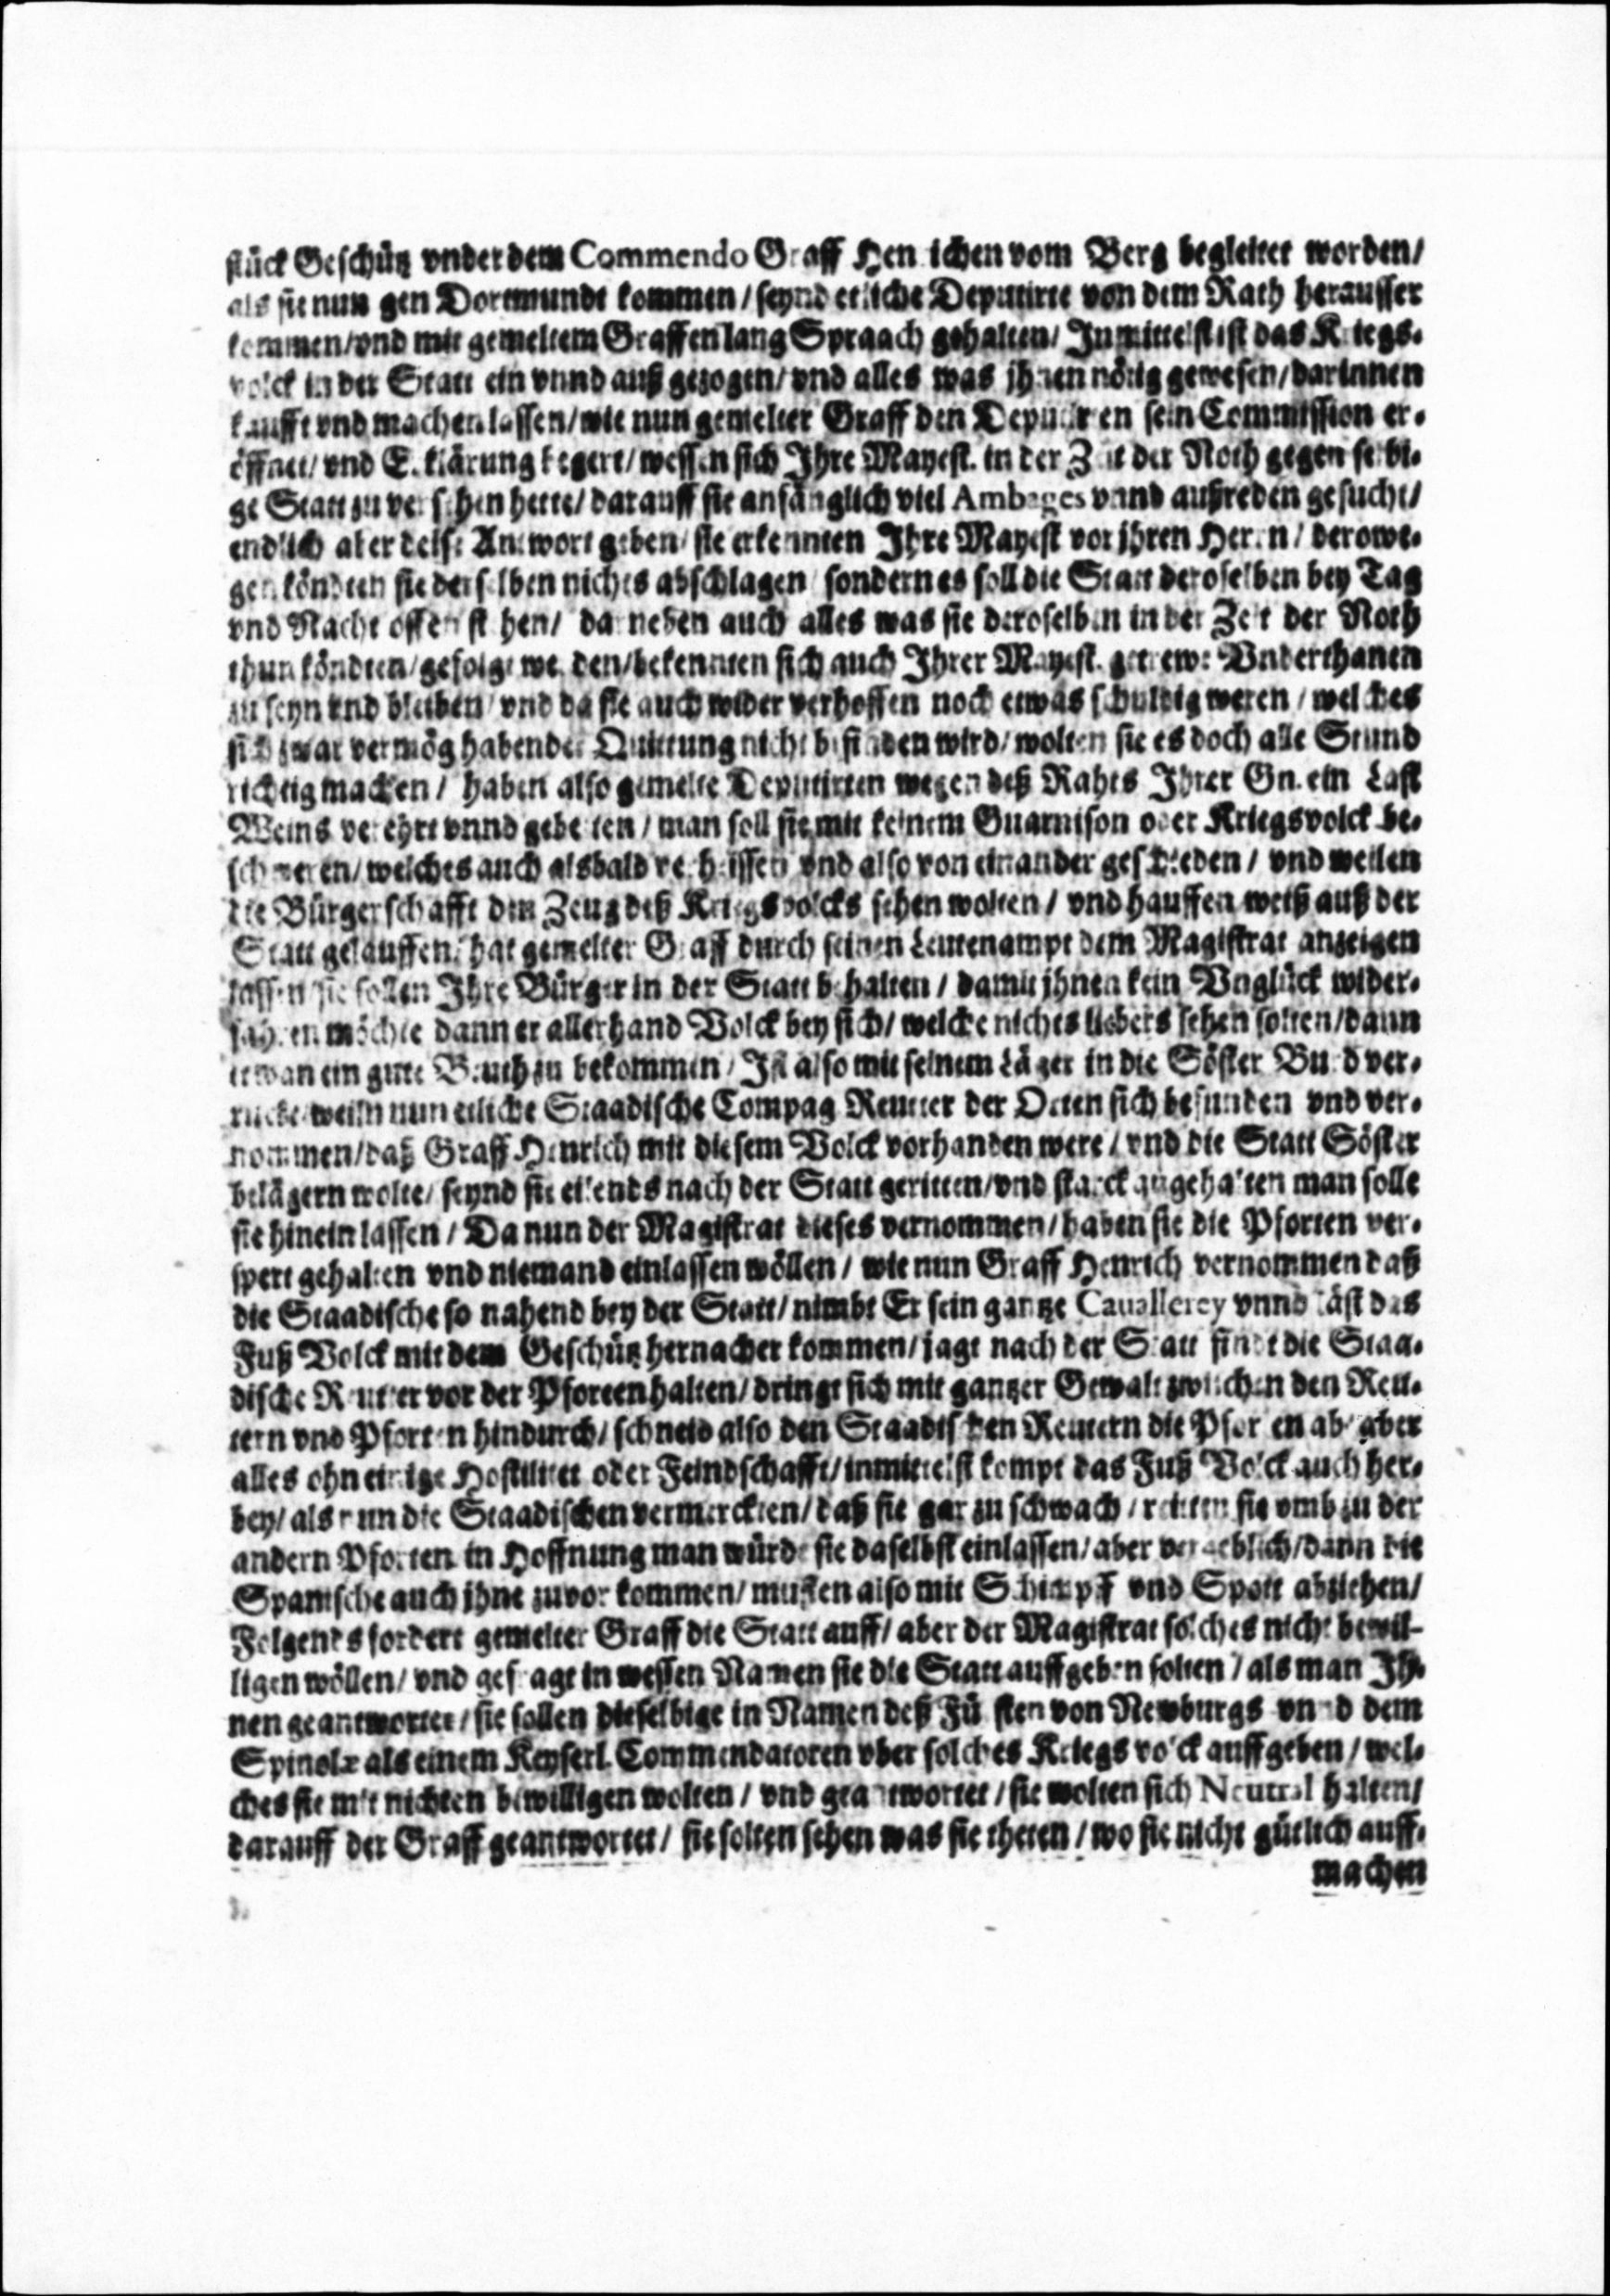 stück Geschütz vnder dem Commendo Graff Henrichen vom Berg begleitet worden/
als sie nun gen Dortmundt kommen / seynd etliche Deputirte von dem Rath herausser
kommen/vnd mit gemeltem Graffen lang Spraach gehalten/ Inmittelst ist das Kriegs-
volck in der Statt ein vnnd auß gezogen/ vnd alles was jhnen nötig gewesen/darinnen
kaufft vnd machen lassen/wie nun gemelter Graff den Deputirten sein Commission er-
öffnet/ vnd Erklärung begert/ wessen sich Ihre Mayest. in der Zeit der Noth gegen selbi-
ge Statt zu versehen hette/ darauff sie anfänglich viel Ambages vnnd außreden gesucht/
endlich aber diese Antwort geben/ sie erkennten Ihre Mayest vor jhren Herrn / derowe-
gen köndten sie derselben nichts abschlagen / sondern es soll die Statt deroselben bey Tag
vnd Nacht offen stehen/ darneben auch alles was sie deroselben in der Zeit der Noth
thun köndten/gefolgt werden/bekennten sich auch Ihrer Mayest. getrewe Vnderthanen
zu seyn vnd bleiben/ vnd da sie auch wider verhoffen noch etwas schuldig weren / welches
sich zwar vermög habender Quittung nicht befinden wird/ wolten sie es doch alle Stund
richtig machen / haben also gemelte Deputirten wegen deß Rahts Ihrer Gn. ein Last
Weins verehrt vnnd gebetten / man soll sie mit keinem Guarnison oder Kriegsvolck be-
schweren/ welches auch alsbald verheissen vnd also von einander geschieden / vnd weilen
die Bürgerschafft den Zeug deß Kriegsvolcks sehen wolten / vnd hauffen weiß auß der
Statt gelauffen/ hat gemelter Graff durch seinen Leutenampt dem Magistrat anzeigen
lassen/ sie sollen Ihre Bürger in der Statt behalten / damit jhnen kein Vnglück wider-
fahren möchte dann er allerhand Volck bey sich/ welche nichts liebers sehen solten/dann
etwan ein gute Beuth zu bekommen / Ist also mit seinem Läger in die Söster Burd ver-
ruckt/ weiln nun etliche Staadische Compag Reutter der Orten sich befunden vnd ver-
nommen/daß Graff Henrich mit diesem Volck vorhanden were / vnd die Statt Söster
belägern wolte/ seynd sie eilends nach der Statt geritten/vnd starck angehalten man solle
sie hinein lassen / Da nun der Magistrat dieses vernommen/ haben sie die Pforten ver-
spert gehalten vnd niemand einlassen wöllen / wie nun Graff Henrich vernommen daß
die Staadische so nahend bey der Statt/ nimbt Er sein gantze Cauallerey vnnd läst das
Fuß Volck mit dem Geschütz hernacher kommen/ jagt nach der Statt findt die Staa-
dische Reutter vor der Pforten halten/ dringt sich mit gantzer Gewalt zwischen den Reu-
tern vnd Pforten hindurch/ schneid also den Staadischen Reutern die Pforten ab/ aber
alles ohn einige Hostilitet oder Feindschafft/ inmittelst kompt das Fuß Volck auch her-
bey/ als nun die Staadischen vermerckten/ daß sie gar zu schwach / reitten sie vmb zu der
andern Pforten in Hoffnung man würde sie daselbst einlassen/ aber vergeblich/dann die
Spanische auch jhne zuvor kommen/ musten also mit Schimpff vnd Spott abziehen/
Folgends fordert gemelter Graff die Statt auff/ aber der Magistrat solches nicht bewil-
ligen wöllen/ vnd gefragt in wessen Namen sie die Statt auffgeben solten / als man Ih-
nen geantwortet / sie sollen dieselbige in Namen deß Fürsten von Newburgs vnnd dem
Spinolæ als einem Keyserl. Commendatoren vber solches Kriegsvolck auffgeben / wel-
ches sie mit nichten bewilligen wolten / vnd geantwortet / sie wolten sich Neutral halten/
darauff der Graff geantwortet / sie solten sehen was sie theten / wo sie nicht gütlich auff-
machen